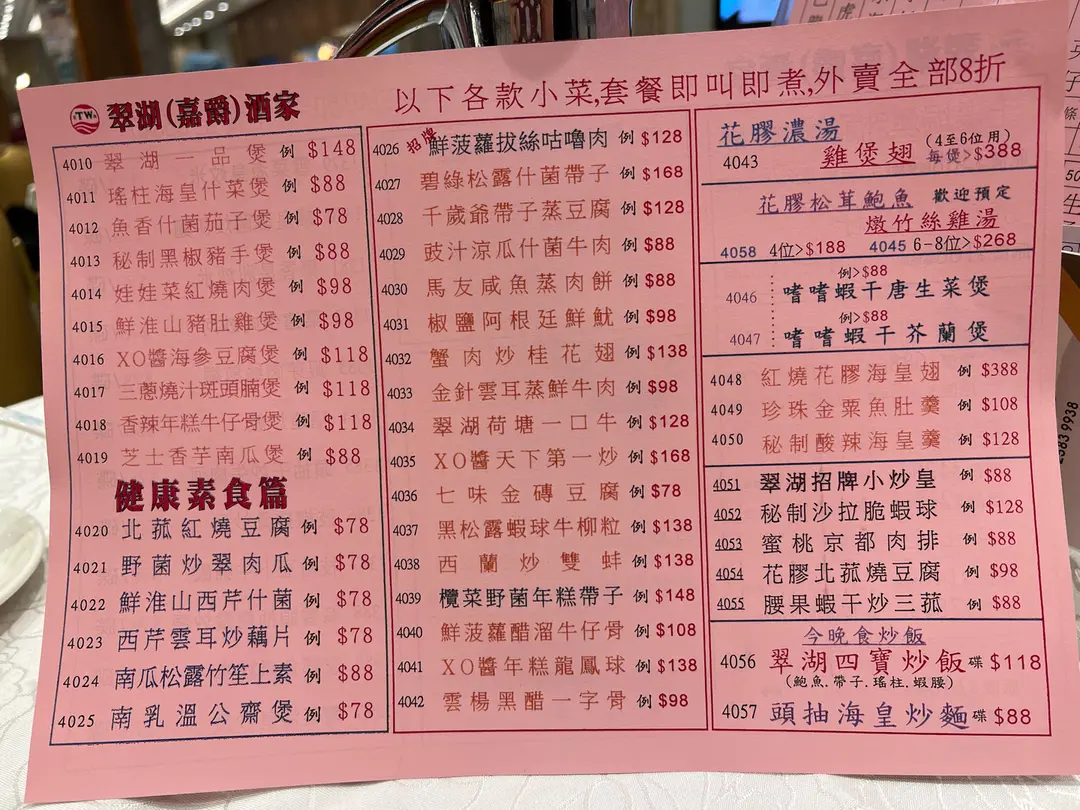 TW
翠湖(嘉爵)酒家
以下各款小菜,套餐即叫即煮,外賣全部8折
4010 翠湖一品煲 例 $148
4011 瑤柱海皇什菜煲 例 $88
4012 魚香什菌茄子煲 例 $78
4013 秘制黑椒豬手煲 例 $88
4014 娃娃菜紅燒肉煲 例 $98
4015 鮮淮山豬肚雞煲 例 $98
4016 XO醬海參豆腐煲 例 $118
4017 三蔥燒汁斑頭腩煲 例 $118
4018 香辣年糕牛仔骨煲 例 $118
4019 芝士香芋南瓜煲 例 $88
健康素食篇
4020 北菰紅燒豆腐 例 $78
4021 野菌炒翠肉瓜 例 $78
4022 鮮淮山西芹什菌 例 $78
4023 西芹雲耳炒藕片 例 $78
4024 南瓜松露竹笙上素 例 $88
4025 南乳溫公齋煲 例 $78
4026 招牌 鮮菠蘿拔絲咕嚕肉 例 $128
4027 碧綠松露什菌帶子 例 $168
4028 千歲爺帶子蒸豆腐 例 $128
4029 豉汁涼瓜什菌牛肉 例 $88
4030 馬友咸魚蒸肉餅 例 $88
4031 椒鹽阿根廷鮮魷 例 $98
4032 蟹肉炒桂花翅 例 $138
4033 金針雲耳蒸鮮牛肉 例 $98
4034 翠湖荷塘一口牛 例 $128
4035 XO醬天下第一炒 例 $168
4036 七味金磚豆腐 例 $78
4037 黑松露蝦球牛柳粒 例 $138
4038 西蘭炒雙蚌 例 $138
4039 欖菜野菌年糕帶子 例 $148
4040 鮮菠蘿醋溜牛仔骨 例 $108
4041 XO醬年糕龍鳳球 例 $138
4042 雲楊黑醋一字骨 例 $98
花膠濃湯
(4至6位用)
4043 雞煲翅 每煲>$388
花膠松茸鮑魚 歡迎預定
燉竹絲雞湯
4058 4位>$188 4045 6-8位>$268
例>$88
4046 嗜嗜蝦干唐生菜煲
例>$88
4047 嗜嗜蝦干芥蘭煲
4048 紅燒花膠海皇翅 例 $388
4049 珍珠金粟魚肚羹 例 $108
4050 秘制酸辣海皇羹 例 $128
4051 翠湖招牌小炒皇 例 $88
4052 秘制沙拉脆蝦球 例 $128
4053 蜜桃京都肉排 例 $88
4054 花膠北菰燒豆腐 例 $98
4055 腰果蝦干炒三菰 例 $88
今晚食炒飯
4056 翠湖四寶炒飯 碟 $118
(鮑魚.帶子.瑤柱.蝦腰)
4057 頭抽海皇炒麵 碟 $88
2583 9938